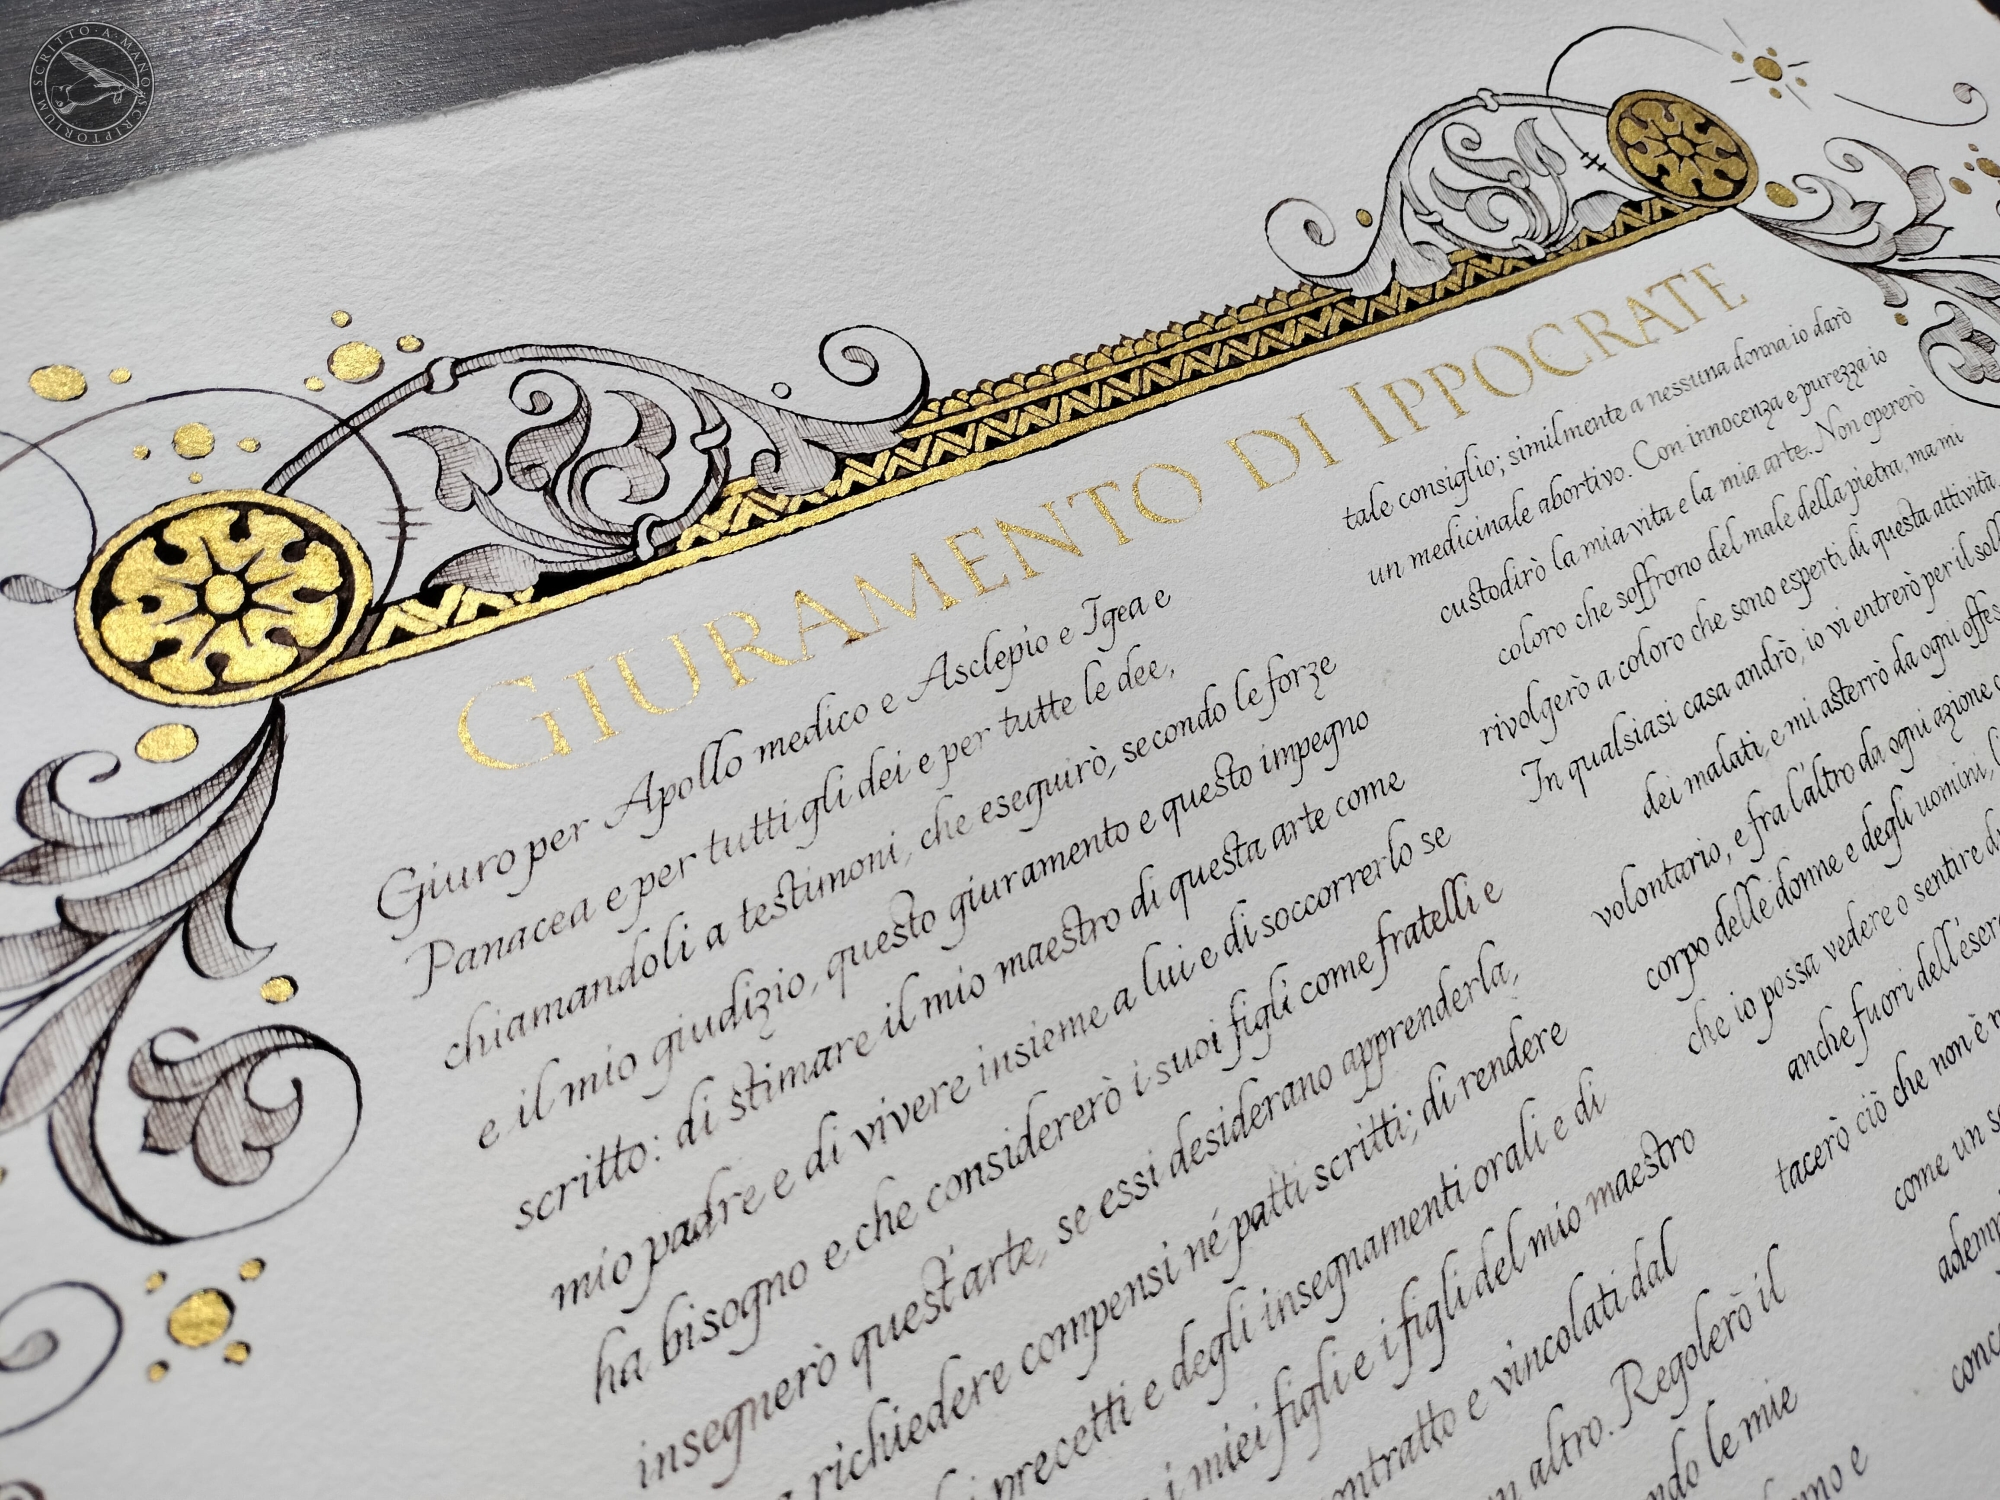 SCRITTO·A·MANO
SCRIPTORIUM
GIURAMENTO DI IPPOCRATE
Giuro per Apollo medico e Asclepio e Igea e
Panacea e per tutti gli dei e per tutte le dee,
chiamandoli a testimoni, che eseguirò, secondo le forze
e il mio giudizio, questo giuramento e questo impegno
scritto: di stimare il mio maestro di questa arte come
mio padre e di vivere insieme a lui e di soccorrerlo se
ha bisogno e che considererò i suoi figli come fratelli e
insegnerò quest'arte, se essi desiderano apprenderla,
richiedere compensi né patti scritti; di rendere
precetti e degli insegnamenti orali e di
i miei figli e i figli del mio maestro
contratto e vincolati dal
altro. Regolerò il
le mie
e
tale consiglio; similmente a nessuna donna io darò
un medicinale abortivo. Con innocenza e purezza io
custodirò la mia vita e la mia arte. Non opererò
coloro che soffrono del male della pietra, ma mi
rivolgerò a coloro che sono esperti di questa attività.
In qualsiasi casa andrò, io vi entrerò per il
dei malati, e mi asterrò da ogni
volontario, e fra l'altro da ogni azione
corpo delle donne e degli uomini,
che io possa vedere o sentire
anche fuori
tacerò ciò che non è
come un